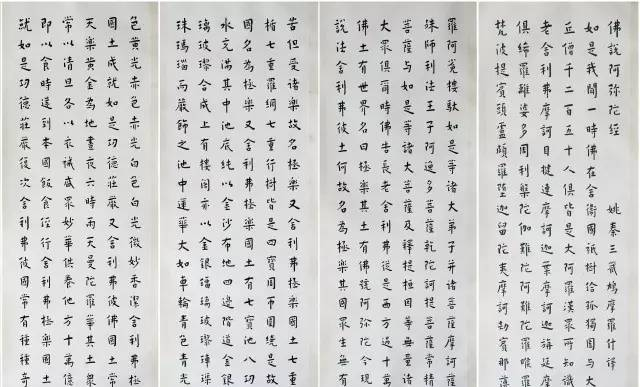 佛說阿彌陀經 姚秦三藏鳩摩羅什譯
如是我聞一時佛在舍衛國祇樹給孤獨園與大
丘僧千二百五十人俱皆是大阿羅漢眾所知識
老舍利弗摩訶目犍連摩訶迦葉摩訶迦旃延摩
俱絺羅離婆多周利槃陀伽難陀阿難陀羅睺
梵波提賓頭盧頗羅墮迦留陀夷摩訶劫賓那薄
羅阿㝹樓馱如是等諸大弟子并諸菩薩摩訶薩
殊師利法王子阿逸多菩薩乾陀訶提菩薩常精
菩薩與如是等諸大菩薩及釋提桓因等無量諸
大眾俱爾時佛告長老舍利弗從是西方過十萬
佛土有世界名曰極樂其土有佛號阿彌陀今現
說法舍利弗彼土何故名為極樂其國眾生無有
苦但受諸樂故名極樂又舍利弗極樂國土七重
楯七重羅網七重行樹皆是四寶周帀圍繞是故
國名為極樂又舍利弗極樂國土有七寶池八功
水充滿其中池底純以金沙布地四邊階道金銀
璃玻瓈合成上有樓閣亦以金銀琉璃玻瓈硨磲
珠瑪瑙而嚴飾之池中蓮華大如車輪青色青光
色黃光赤色赤光白色白光微妙香潔舍利弗極
國土成就如是功德莊嚴又舍利弗彼佛國土常
天樂黃金為地晝夜六時雨天曼陀羅華其土眾
常以清旦各以衣祴盛眾妙華供養他方十萬億
即以食時還到本國飯食經行舍利弗極樂國土
就如是功德莊嚴復次舍利弗彼國常有種種奇